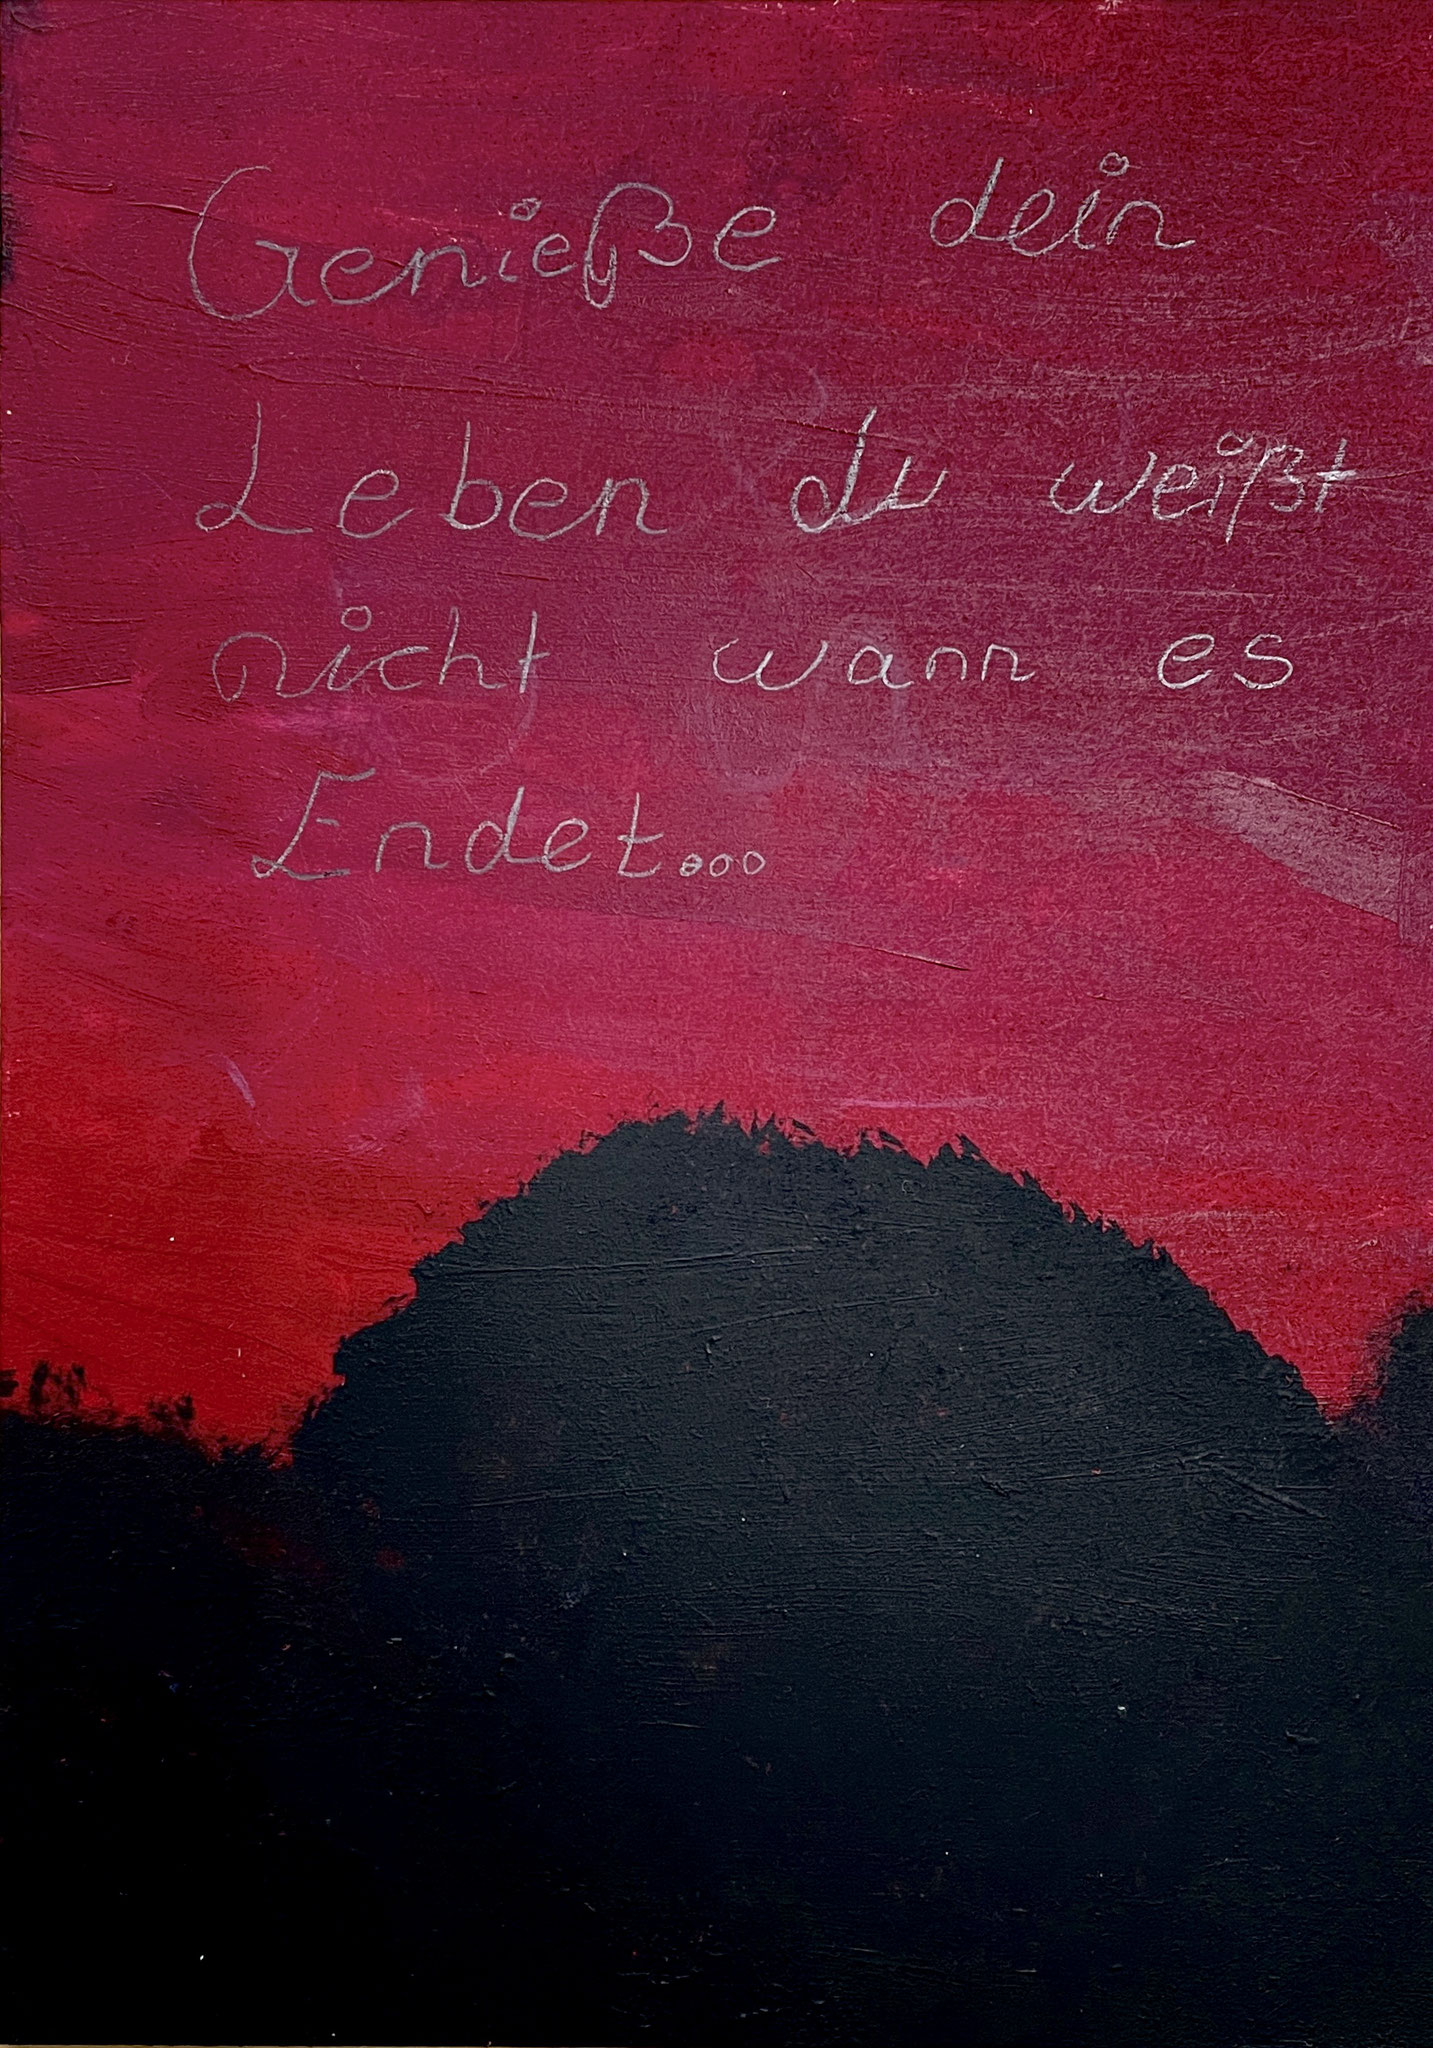 Genieße dein
Leben du weißt
nicht wann es
Endet...